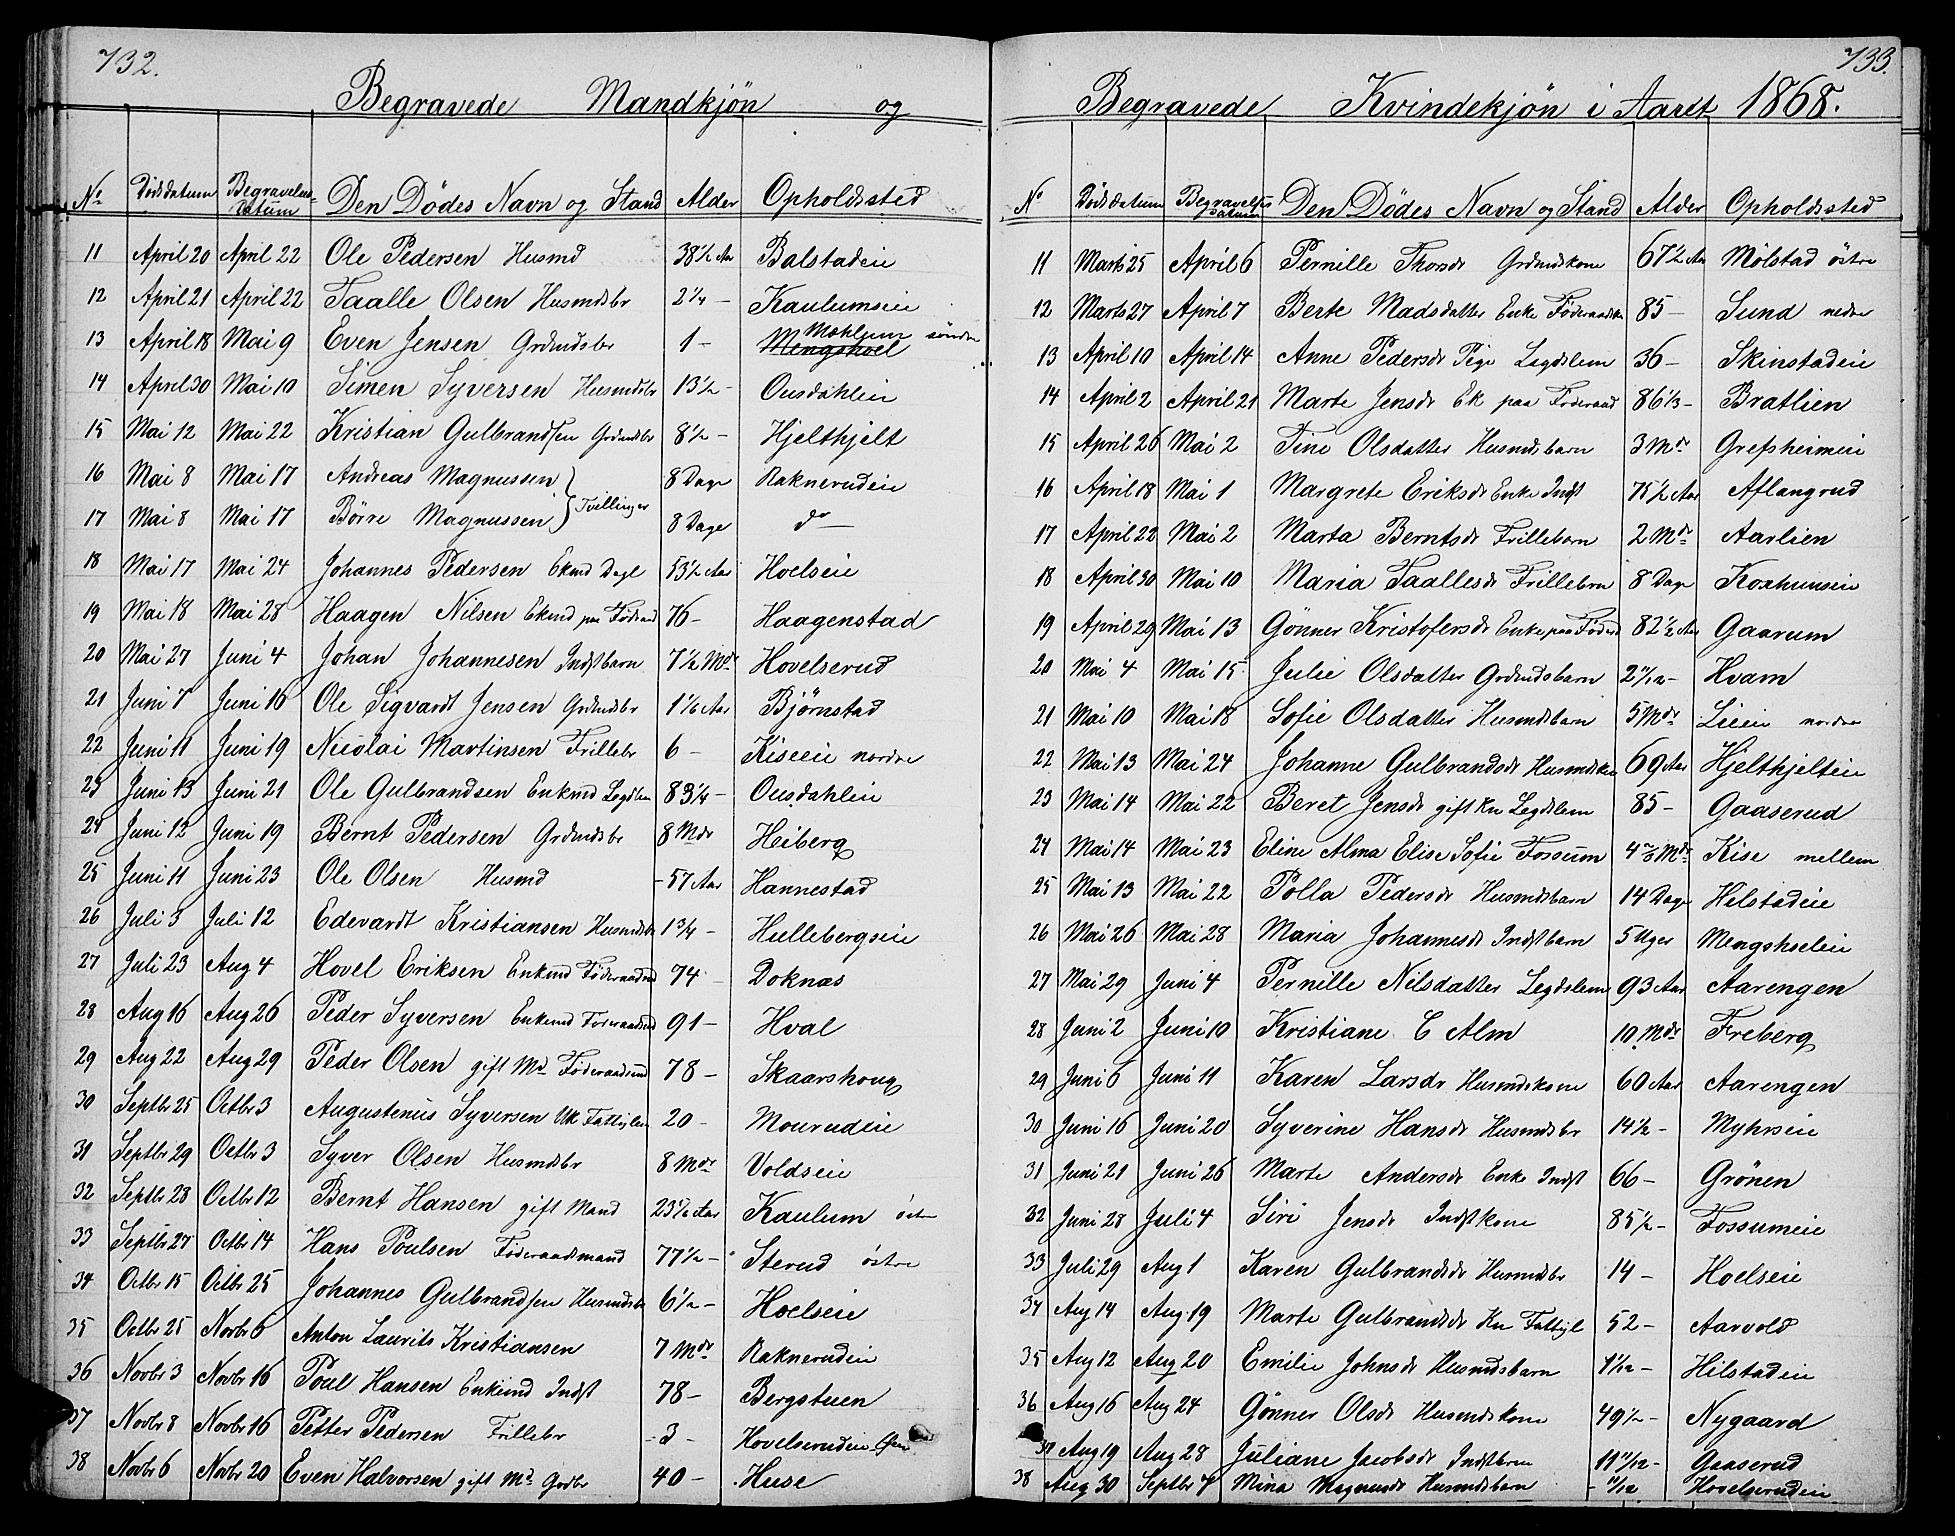 732.
Begravede Mandkjøn og
No Dödsdatum Begravelsesdatum Den Dødes Navn og Stand Alder Opholdssted
11 April 20 April 22 Ole Pedersen Husmd 38 1/2 Aar Balstadeie
12 April 21 April 22 Taalle Olsen Husmdsbr 2 1/4 - Kaulumseie
13 April 18 Mai 9 Even Jensen Grdmdsbr 1 - Mengshoel Mæhlum söndre
14 April 30 Mai 10 Simen Syversen Husmdsbr 13 1/2 - Ousdahleie
15 Mai 12 Mai 22 Kristian Gulbrandsen Grdmdsbr 8 1/2 - Hjelthjelt
16 Mai 8 Mai 17 Andreas Magnussen } Tvillinger 8 Dage Raknerudeie
17 Mai 8 Mai 17 Börre Magnussen } 8 Dage do
18 Mai 17 Mai 24 Johannes Pedersen Ekmd Dagl 53 1/2 Aar Hoelseie
19 Mai 18 Mai 28 Haagen Nilsen Ekmd paa Föderaad 76 - Haagenstad
20 Mai 27 Juni 4 Johan Johannesen Indstbarn 7 1/2 Mdr Hovelserud
21 Juni 7 Juni 16 Ole Sigvardt Jensen Grdmdsbr 1 1/6 Aar Bjørnstad
22 Juni 11 Juni 19 Nicolai Martinsen Frillebr 6 - Kiseeie nordre
23 Juni 13 Juni 21 Ole Gulbrandsen Enkmd Legdslem 83 1/4 - Ousdahleie
24 Juni 12 Juni 19 Bernt Pedersen Grdmdsbr 8 Mdr Heiberg
25 Juni 11 Juni 23 Ole Olsen Husmd - 57 Aar Hannestad
26 Juli 3 Juli 12 Edevardt Kristiansen Husmdsbr 1 3/4 - Hullebergseie
27 Juli 23 Aug 4 Hovel Eriksen Enkmd Föderaadsmd 74 - Doknæs
28 Aug 16 Aug 26 Peder Syversen Enkemd Foreraadsmd 91 - Hval
29 Aug 22 Aug 29 Peder Olsen gift Md Föderaadsmd 78 - Skaarshoug
30 Septbr 25 Octbr 3 Augustenus Syversen Uk Fattiglem 20 - Mourudeie
31 Septbr 29 Octbr 3 Syver Olsen Husmdsbr 8 Mdr Voldseie
32 Septbr 28 Octbr 12 Bernt Hansen gift Mand Aar Kaulum östre
33 Septbr 27 Octbr 14 Hans Poulsen Föderaadsmand 77 1/2 - Sterud östre
34 Octbr 15 Octbr 25 Johannes Gulbrandsen Husmdsbr 6 1/2 - Hoelseie
35 Octbr 25 Novbr 6 Anton Laurits Kristiansen 7 Mdr Raknerudeie
36 Novbr 3 Novbr 16 Poul Hansen Enkemd Indst 78 - Bergsteien
37 Novbr 8 Novbr 16 Petter Pedersen Frillebr - 3 - Hovelserudeie
38 Novbr 6 Novbr 20 Even Halvorsen gift Md Gdbr 40 - Huse
733.
Begravede Kvindekjön i Aaret 1868.
No Dödsdatum Begravelsesdatum Den Dødes Navn og Stand Alder Opholdssted
11 Marts 25 April 6 Pernille Thorsdr Grdmdskone 67 1/2 Aar Mölstad östre
12 Marts 27 April 7 Berte Madsdatter Enke Föderaadsk 85 - Sund nedre
13 April 10 April 14 Anne Pedersdr Pige Legdslem 36 - Skinstadeie
14 April 2 April 21 Marte Jensdr Ek paa Föderaad 86 1/3 - Bratlien
15 April 26 Mai 2 Tine Olsdatter Husmdsbarn 3 Mdr Grefsheimeie
16 April 18 Mai 1 Margrete Eriksdr Enke Indst 75 1/2 Aar Aflangrud
17 April 22 Mai 2 Marta Berntsdr Frillebarn 2 Mdr Aarlien
18 April 30 Mai 10 Maria Taallesdr Frillebrn 8 Dage Korhunseie
19 April 29 Mai 13 Gönner Kristofersdr Enke paa Föderd 82 1/2 Aar Gaarum
20 Mai 4 Mai 15 Julie Olsdatter Grdmdsbarn 2 11/12 - Hvam
21 Mai 10 Mai 18 Sofie Olsdatter Husmdsbarn 5 Mdr Lieeie nordre
22 Mai 13 Mai 24 Johanne Gulbrandsdr Husmdskn 69 Aar Hjelthjelteie
23 Mai 14 Mai 22 Beret Jensdr gift Kn Legdslem 85 - Gaaserud
24 Mai 14 Mai 23 Eline Alma Elise Sofie Fossum 4 2/3 Mdr Kise mellem
25 Mai 13 Mai 22 Polla Pedersdr Husmdsbarn 14 Dage Hilstadeie
26 Mai 26 Mai 28 Maria Johannesdr Indstbarn 5 Uger Mengshoeleie
27 Mai 29 Juni 4 Pernille Nilsdatter Legdslem 93 Aar Aarengen
28 Juni 2 Juni 10 Kristiane C Alm 10 Mdr Freberg
29 Juni 6 Juni 11 Karen Larsdr Husmdskone 60 Aar Aarengen
30 Juni 16 Juni 20 Syverine Hansdr Husmdsbr 14 1/2 - Myhrseie
31 Juni 21 Juni 26 Marte Andersdr Enke Indst 66 - Grönen
32 Juni 28 Juli 4 Siri Jensdr Indstkone 85 1/2 - Fossumeie
33 Juli 29 Aug 1 Karen Gulbrandsdr Husmdsbr 14 - Hoelseie
34 Aug 14 Aug 19 Marte Gulbrandsdr Kn Fattigl 52 - Aarvold
35 Aug 12 Aug 20 Emilie Johnsdr Husmdsbarn 1 1/12 - Hilstadeie
36 Aug 16 Aug 24 Gönner Olsdr Husmdskone 49 1/2 - Nygaard
37 Aug 19 Aug 28 Juliane Jacobsdr Indstbrn 11 11/12 - Gaaserud
38 Aug 30 Septbr 4 Mina Magnusdr Husmdsbarn - 11/12 Hovelserudeie